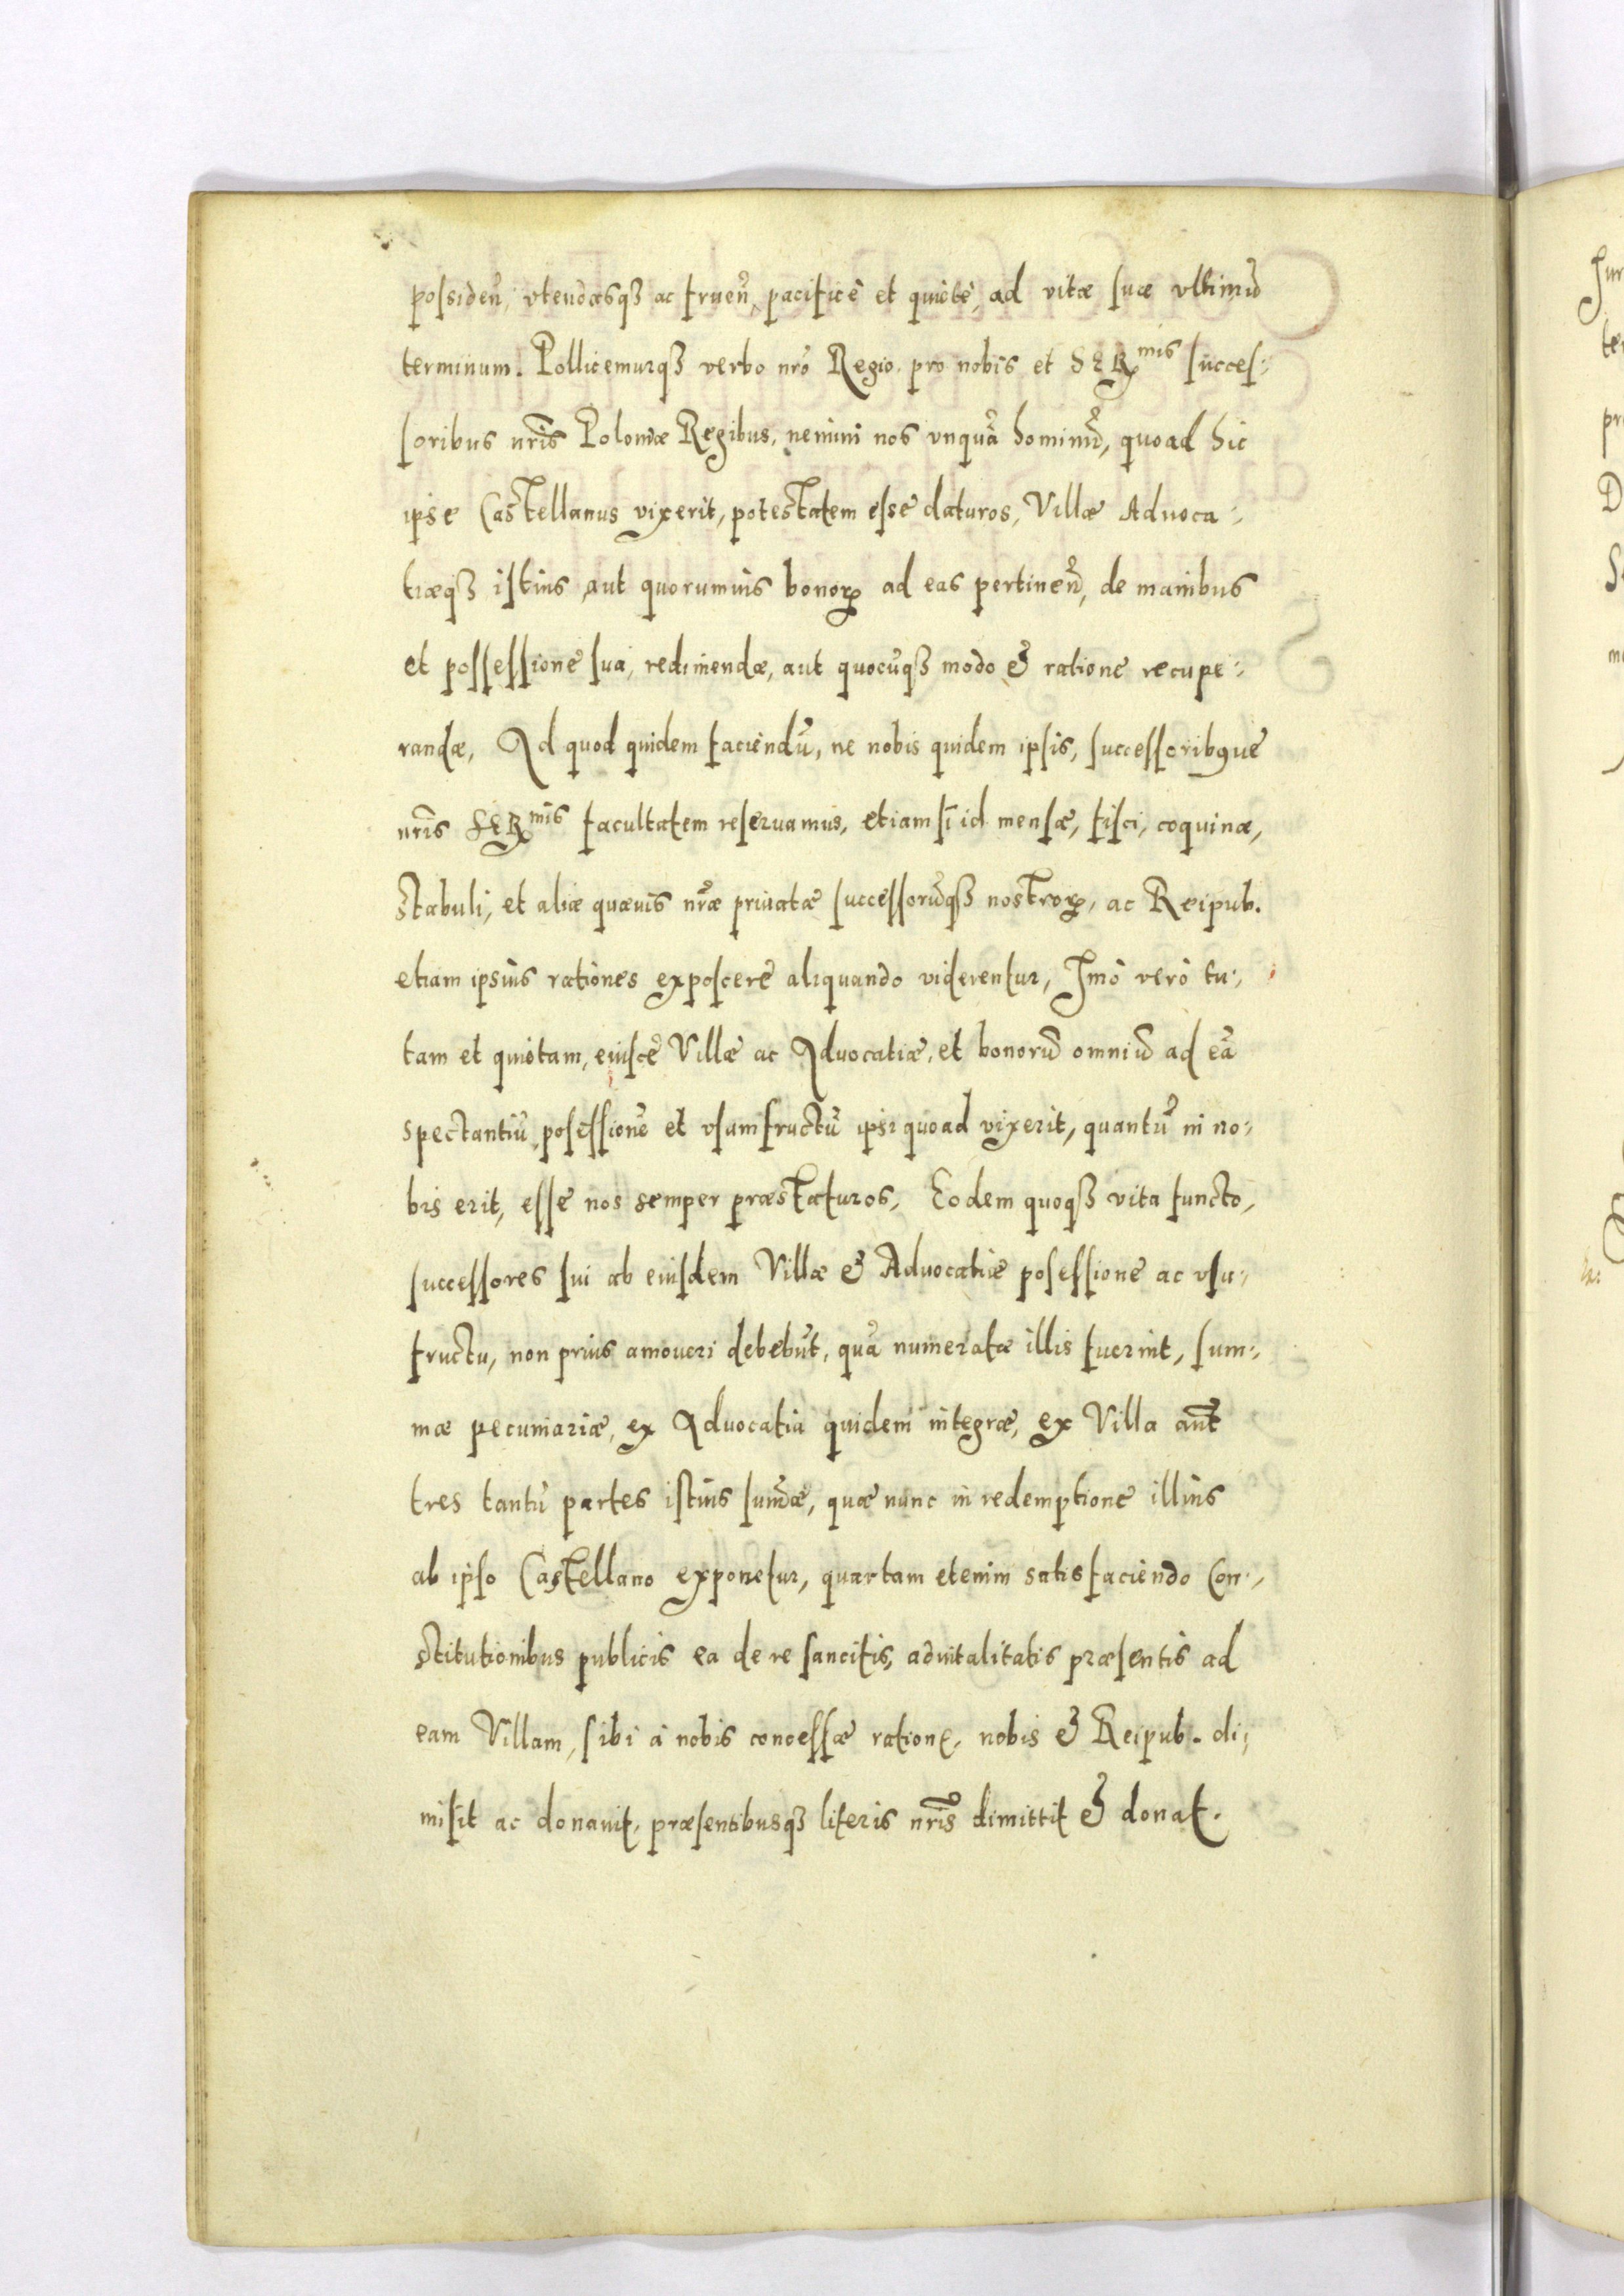 possideñ, vtendasqȝ ac frueñ, pacificè et quietè, ad vitæ suæ vltimũ
terminum. Pollicemurqȝ verbo nr̃o Regio, pro nobis et SER^mis succes-
soribus nr̃is Poloniæ Regibus, nemini nos vnquã hominũ, quoad hic
ipse Castellanus vixerit, potestatem esse daturos, Villæ Aduoca-
tiæqȝ istius aut quorumuis bonoꝝ ad eas pertineñ, de manibus
et possessione sua, redimendæ, aut quocũqȝ modo & ratione recupe-
randæ, Ad quod quidem faciendũ, ne nobis quidem ipsis, successoribꝰue
nr̃is SER^mis facultatem reseruamus, etiamsi id mensæ, fisci, coquinæ,
stabuli, et aliæ quæuis nr̃æ priuatæ successorũqȝ nostroꝝ, ac Reipub.
etiam ipsius rationes exposcere aliquando viderentur, Imò verò tu-
tam et quietam, eiusce Villæ ac Aduocatiæ, et bonorũ omniũ ad eã
spectantiũ possessionẽ et vsumfructũ ipsi quoad vixerit, quantũ in no-
bis erit, esse nos semper præstaturos, Eodem quoqȝ vita functo,
successores sui ab eiusdem Villæ & Aduocatiæ posessione ac vsu-
fructu, non prius amoueri debebũt, quã numeratæ illis fuerint, sum-
mæ pecuniariæ, ex Aduocatia quidem integræ, ex Villa aũt
tres tantũ partes istius sum̃æ, quæ nunc in redemptione illius
ab ipso Castellano exponetur, quartam etenim satisfaciendo Con-
stitutionibus publicis ea de re sancitis, aduitalitatis præsentis ad
eam Villam, sibi à nobis concessæ ratione, nobis & Reipub. di-
misit ac donauit, præsentibusqȝ literis nr̃is dimittit & donat.